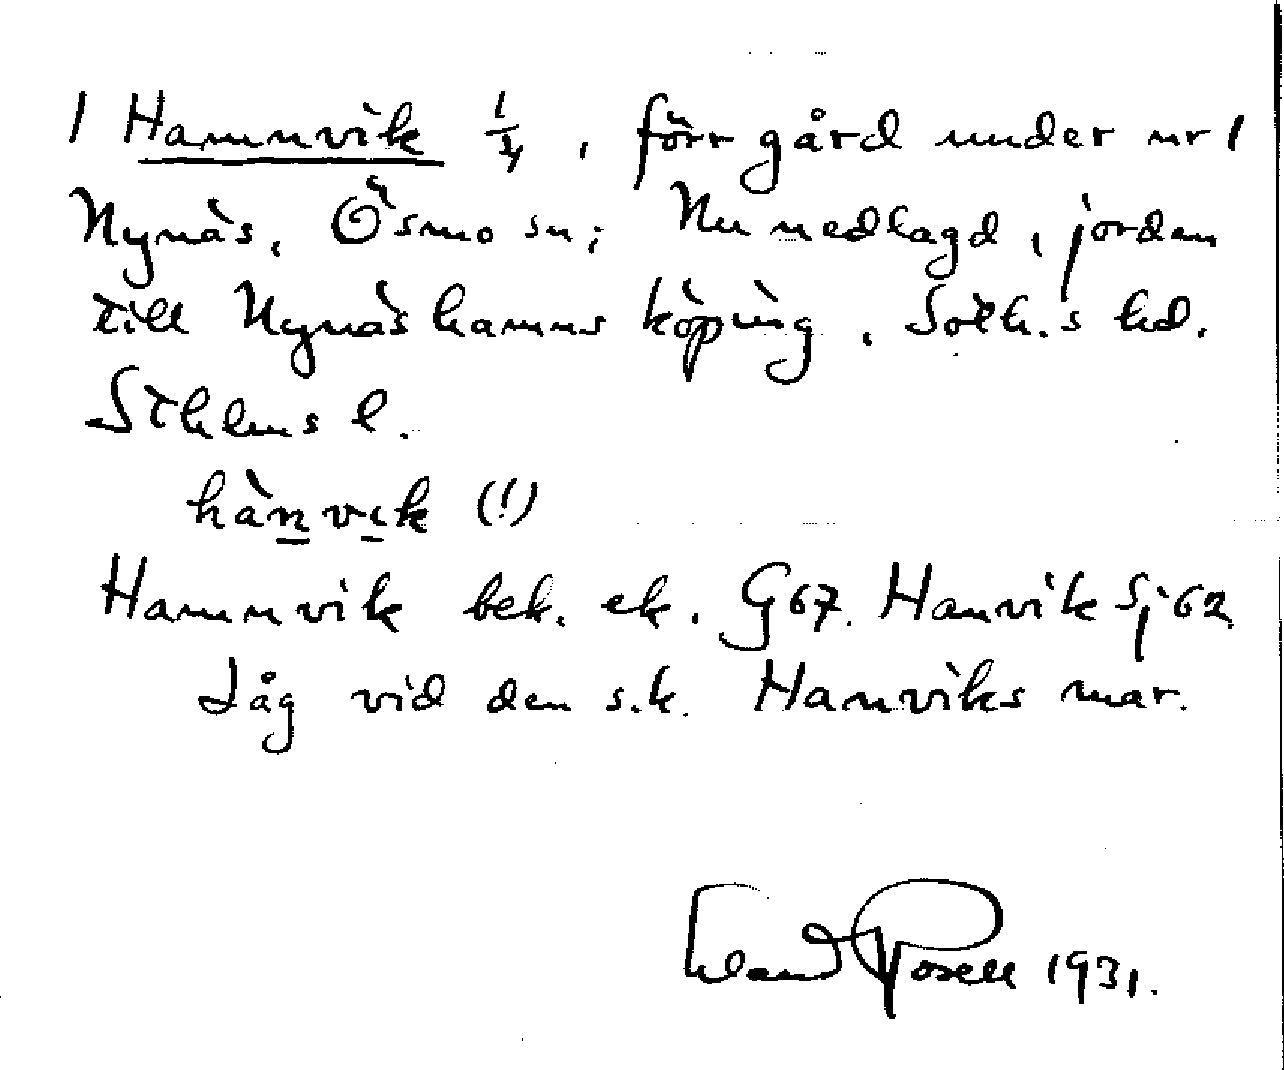 1 Hamnvik 1/4, förr gård under nr 1
Nynäs, Ösmo sn; Nu nedlagd, jorden
till Nynäshamns köping, Soth.s hd.
Sthlms l.
hànvik (!)
Hamnvik bek. ek. G67. Hanvik Sj62
Låg vid den s.k. Hanviks mar.
Rosell 1931.